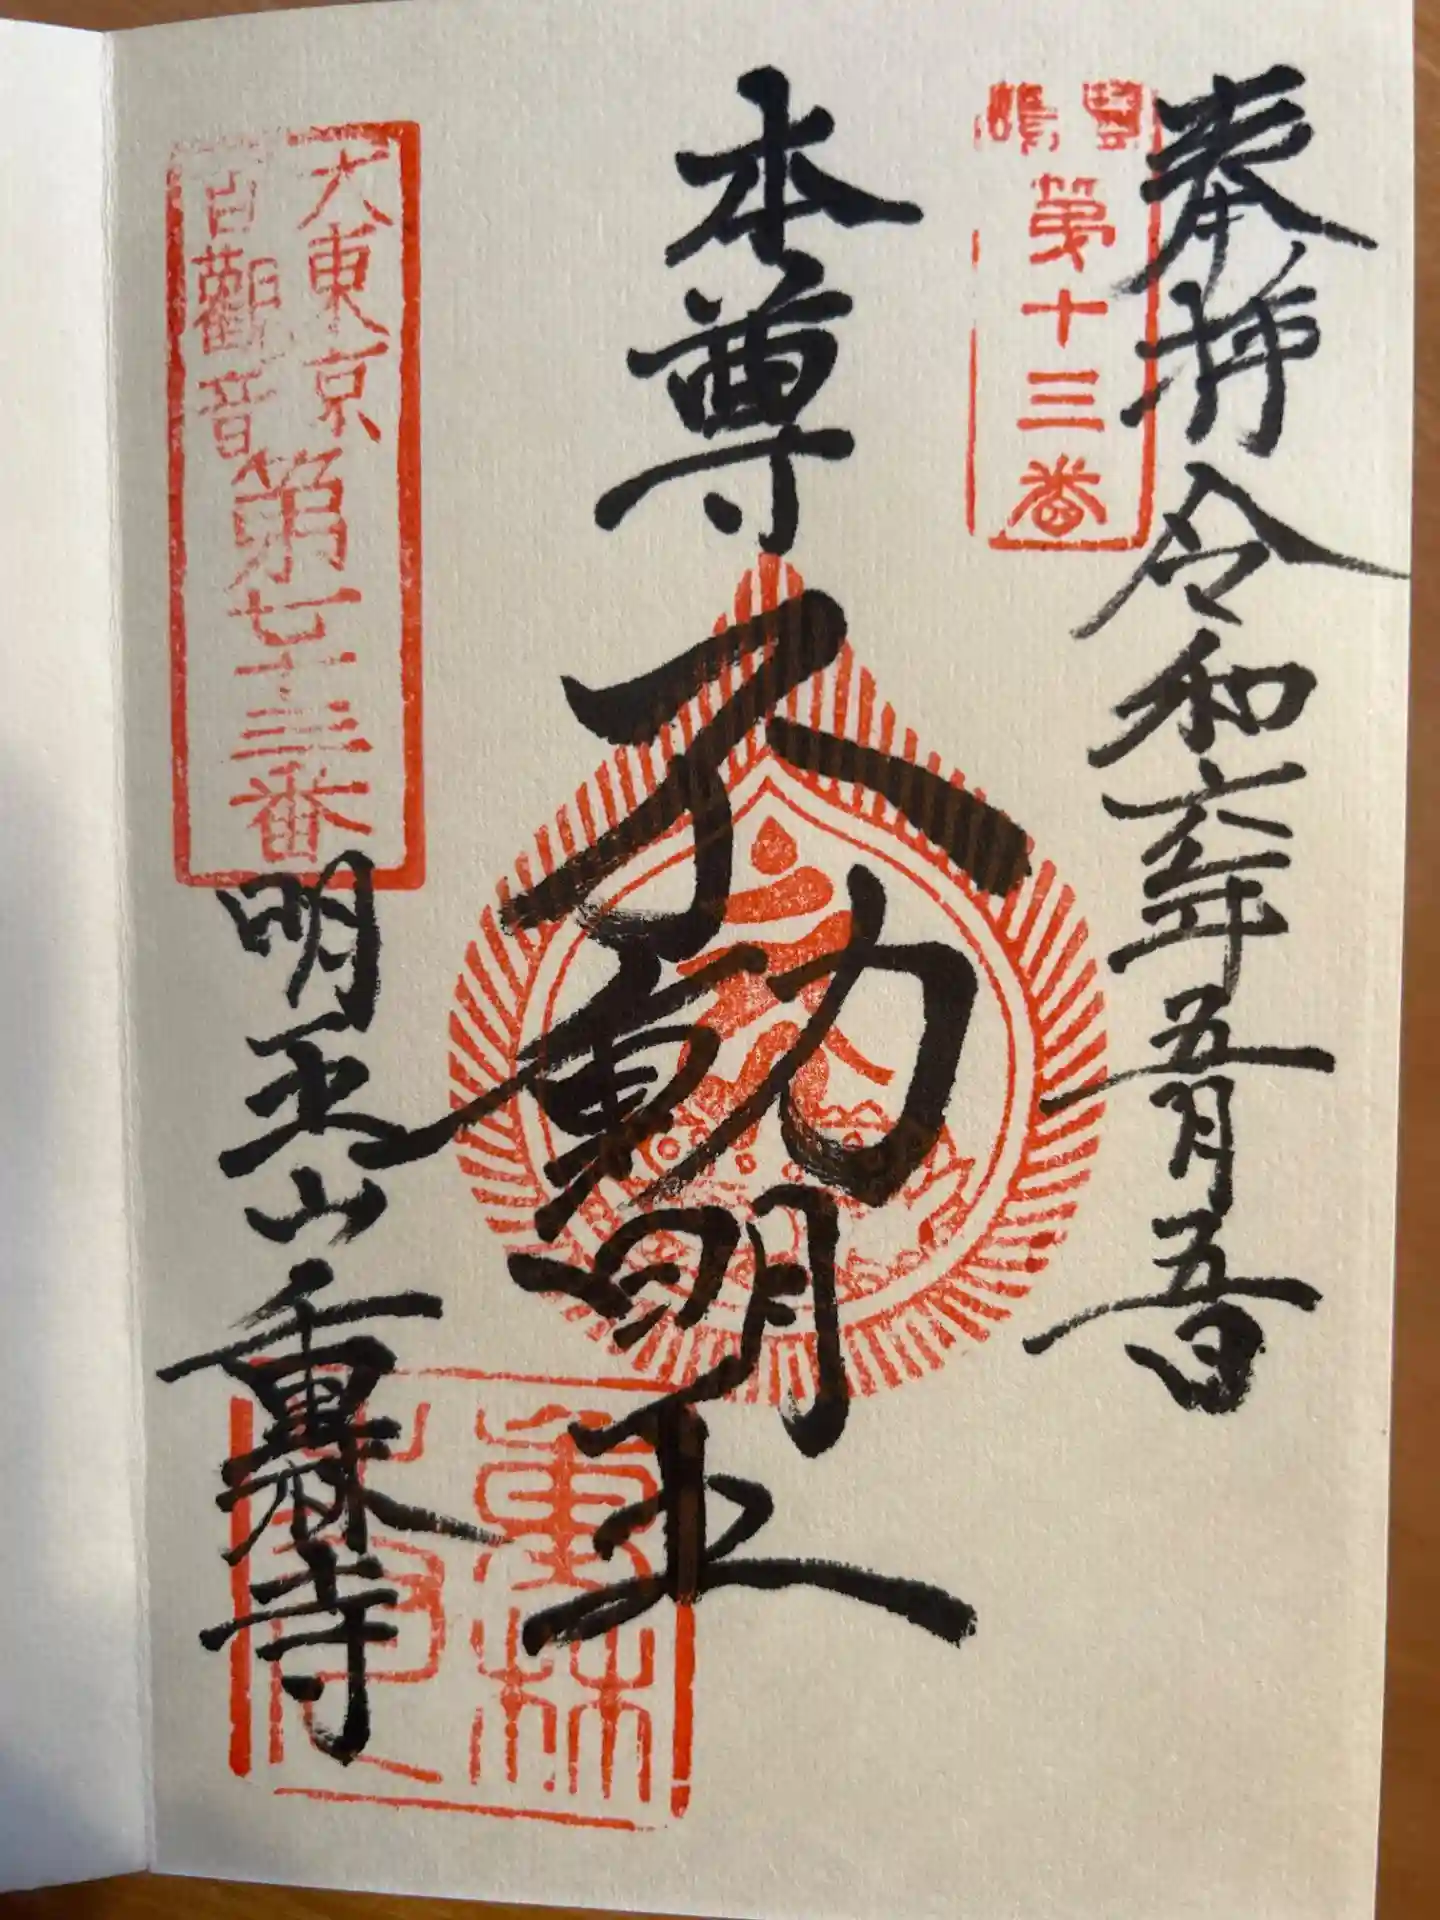 奉拝 令和六年五月五日
豐嶋
第十三番
本尊 不動明王
大東京
百觀音
第七十三番
明王山 重林寺
重林
寺印